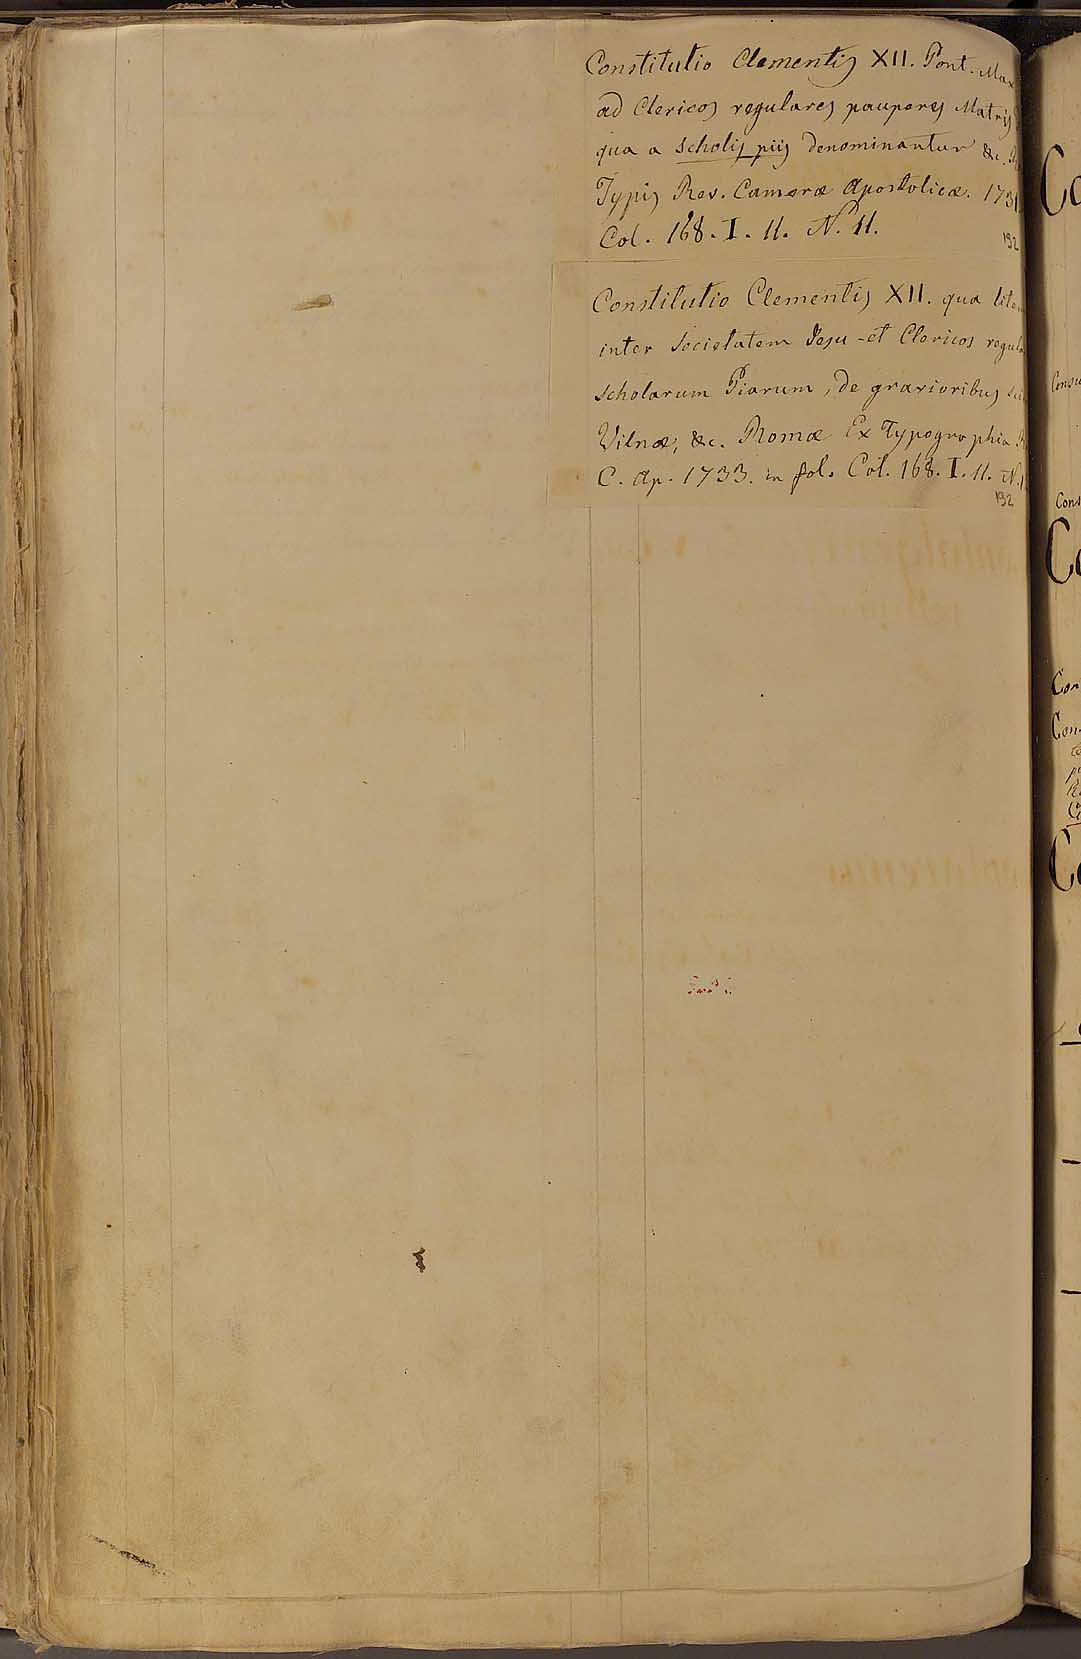 Constitutio Clementis XII. Pont. Max
ad Clericos regulares pauperes Matris
qua a scholis piis denominantur &c.
Typis Rev. Cameræ Apostolicæ. 1731
Col. 168. I. 11. N. 11.
192
Constitutio Clementis XII. qua
inter Societatem Jesu et Clericos
scholarum Piarum, de gravioribus
Vilnæ, &c. Romæ Ex Typographia R
C. Ap. 1733. in fol. Col. 168. I. 11. N.
192